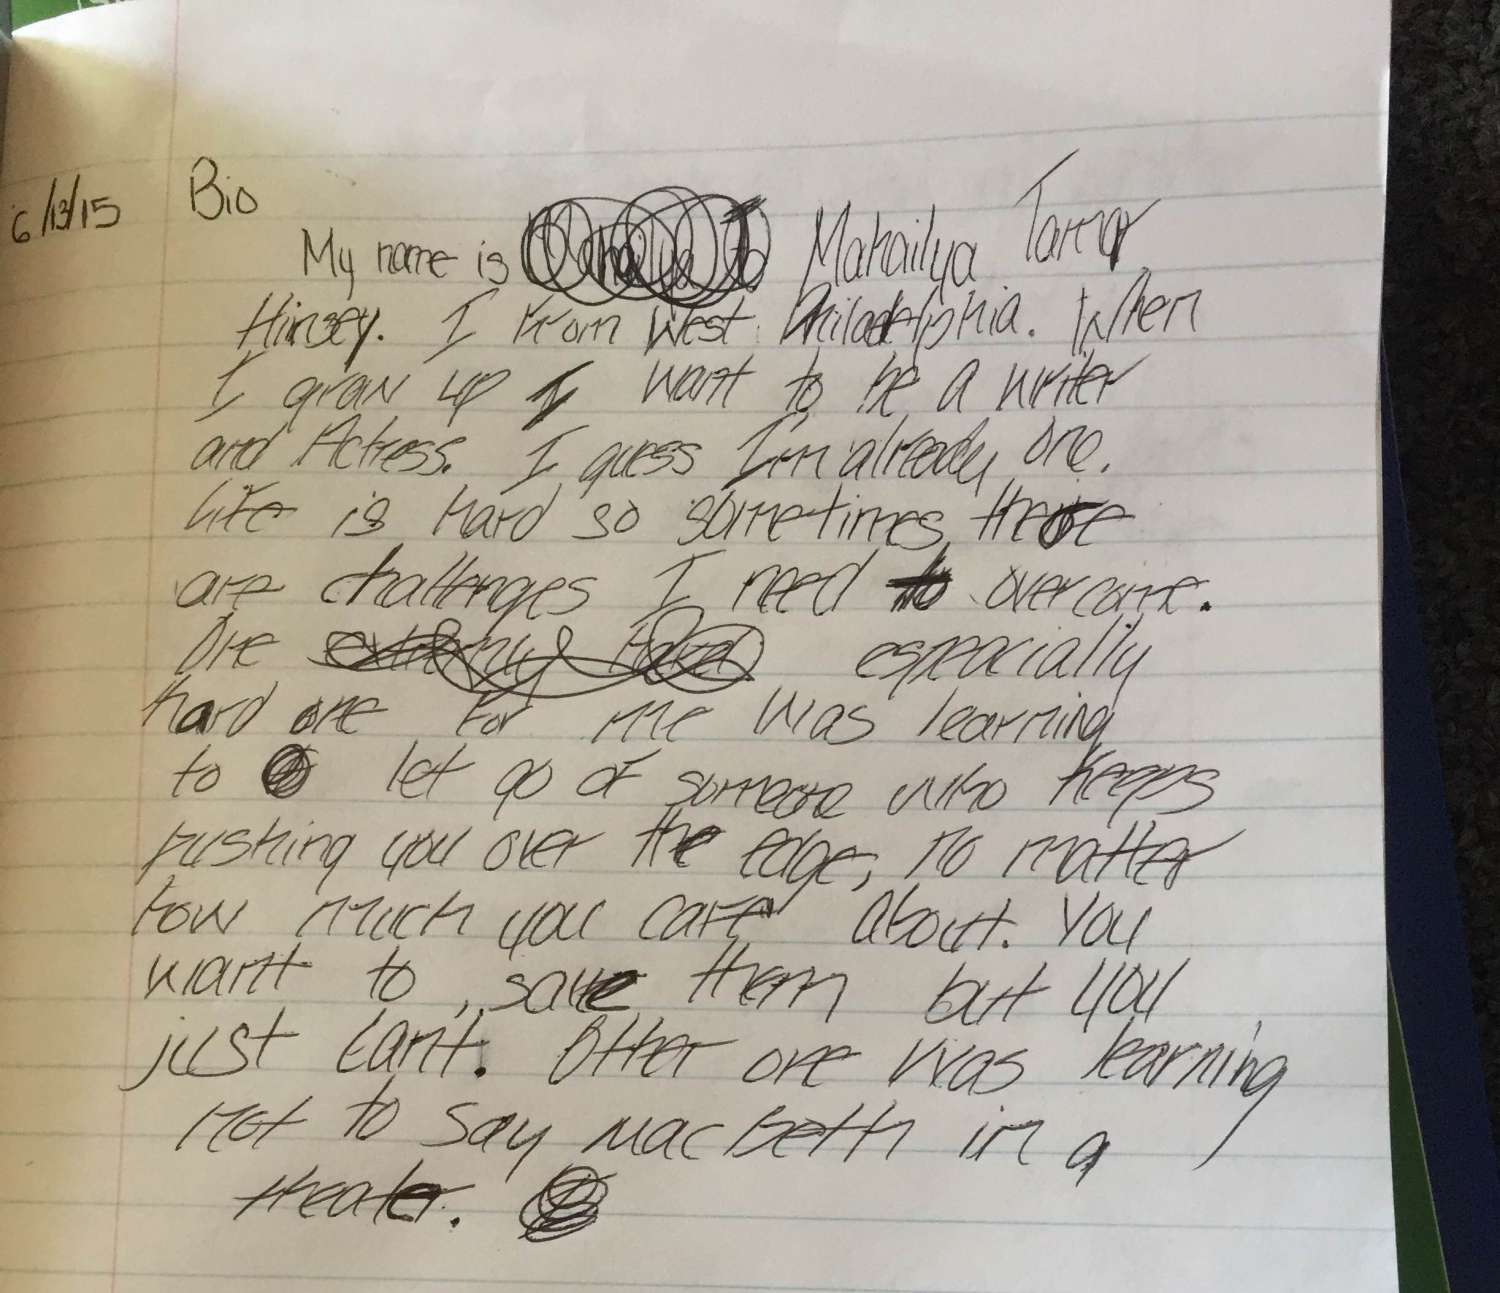 6/13/15 Bio
My name is Mahailya Tamar
Hinsey. I from West Philadelphia. When
I grow up I want to be a writer
and Actress. I guess I'm already one.
Life is hard so sometimes there
are challenges I need to overcome.
One especially
hard one for me was learning
to let go of someone who keeps
pushing you over the edge, no matter
how much you care about. You
want to save them but you
just can't. Other one was learning
not to say MacBeth in a
theater.